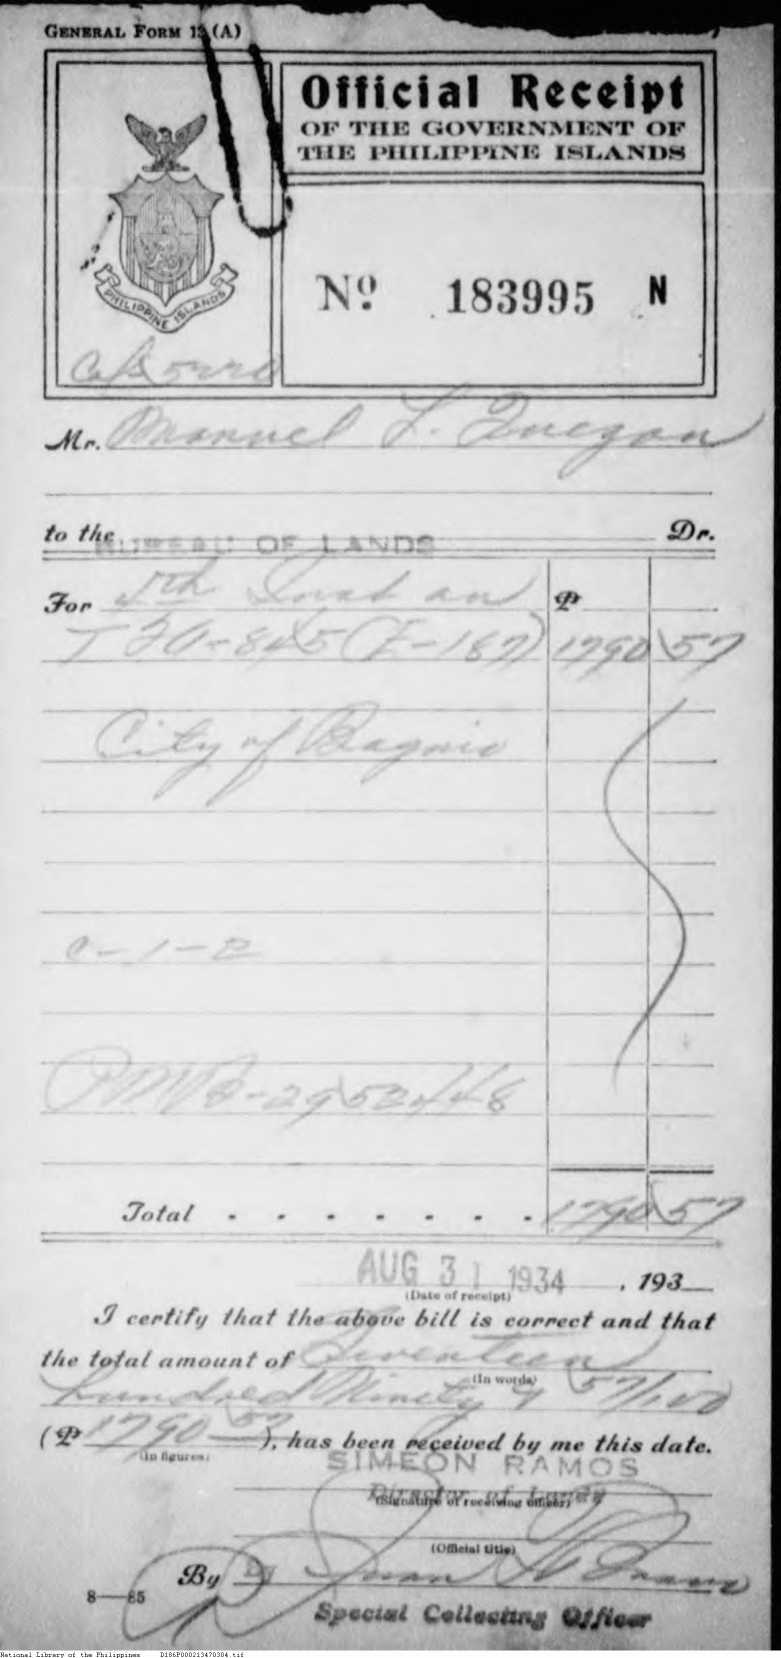 GENERAL FORM 13 (A)
Official Receipt
OF THE GOVERNMENT OF
THE PHILIPPINE ISLANDS
PHILIPPINE ISLANDS
No. 183995 N
Mr. Manuel L. Quezon
to the BUREAU OF LANDS Dr.
For 5th Inst on ₱
845 (E-187) 1790 57
City of Baguio
C-1-2
Total . . . . . . . 1790 57
AUG 31 1934 , 193
(Date of receipt)
I certify that the above bill is correct and that
the total amount of Seventeen
(In words)
hundred Ninety & 57/100
(₱ 1790 57 ), has been received by me this date.
(In figures)
SIMEON RAMOS
Director of Lands
(Signature of receiving officer)
(Official title)
By By Juan
8—85
Special Collecting Officer
National Library of the Philippines D186P000213470304.tif